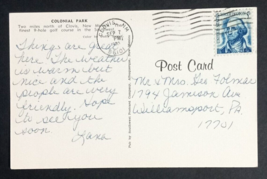 COLONIAL PARK
Two miles north of Clovis, New Mexico
finest 9-hole golf course in the
Things are great
here. The weather
is warm but
nice and the
people are very
friendly. Hope
to see you
soon
Lana
SEP 7
PM
Post Card
Mr & Mrs. Geo Folmer
1794 Jamison Ave
Williamsport, Pa
17701